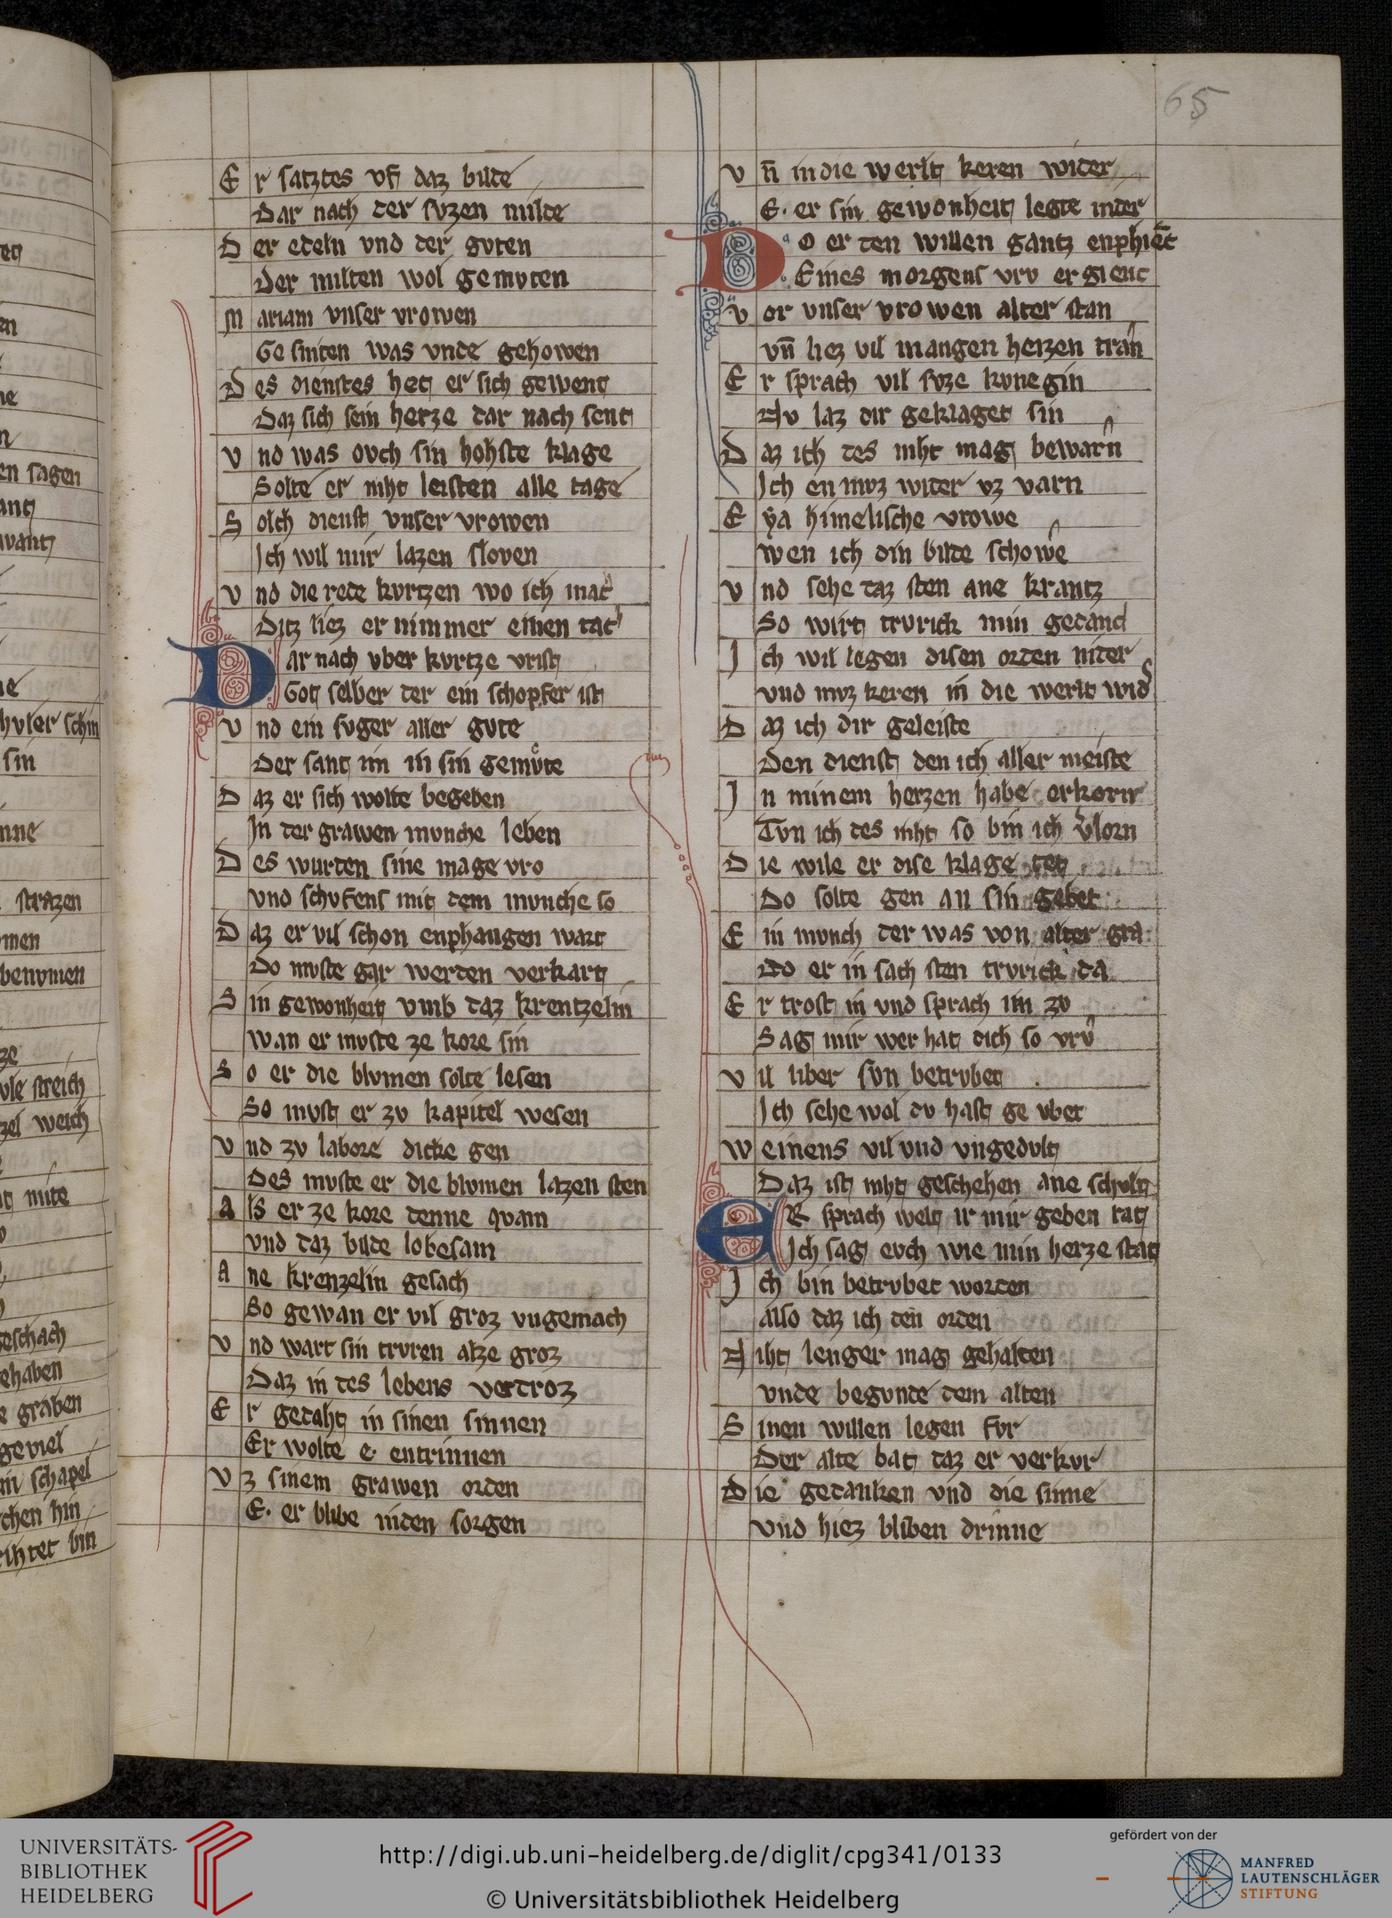 65
Er satztes vf daz bilde
Dar nach der svzen milde
Der edeln vnd der gvten
Der milten wol gemvten
Mariam vnser vrowen
Gesniten was vnde gehowen
Des dienstes het er sich gewent
Daz sich sein herze dar nach sent
Vnd was ovch sin hohste klage
Solte er niht leisten alle tage
Solch dienst vnser vrowen
Ich wil mir lazen
Vnd die rede kvrtzen wo ich mac
Ditz liez er nimmer einen tac
Dar nach vber kvrtze vrist
Got selber der ein schopfer ist
Vnd ein fvger aller gvte
Der sant im in sin gemvͦte
Daz er sich wolte begeben
In der grawen mvnche leben
Des wurden sine mage vro
Vnd schvfens mit dem mvnche so
Daz er vil schon enphangen wart
Do mvste gar werden verkart
Sin gewonheit vmb daz krentzelin
Wan er mvste ze kore sin
So er die blvmen solte lesen
So mvst er zv kapitel wesen
Vnd zv labore dicke gen
Des mvste er die blvmen lazen sten
Als er ze kore denne qvam
Vnd daz bilde lobesam
Ane krenzelin gesach
So gewan er vil groz vngemach
Vnd wart sin trvren alze groz
Daz in des lebens verdroz
Er gedaht in sinen sinnen
Er wolte e. entrinnen
Vz sinem grawen orden
E. er blibe in den sorgen
Vn̄ in die werlt keren wider
E. er sin gewonheit legte nider
Do er den willen gantz enphiēc
Eines morgens vrv er gienc
Vor vnser vrowen alter stan
Vn̄ liez vil mangen heizen tran
Er sprach vil svze kvnegin
Nv laz dir geklaget sin
Daz ich des niht mag bewarn
Ich en mvz wider vz varn
Eya himelische vrowe
Wen ich din bilde schowe
Vnd sehe daz sten ane krantz
So wirt trvrick min gedanc
Ich wil legen disen orden nider
Vnd mvz keren in die werlt wid
Daz ich dir geleiste
Den dienst den ich aller meiste
In minem herzen habe erkorn
Tvn ich des niht so bin ich v̓lorn
Die wile er dise klage tet
Do solte gen an sin gebet
Ein mvnch der was von alter gra
Do er in sach sten trvrick da
Er trost in vnd sprach im zv
Sag mir wer hat dich so vrv
Vil liber svn betrvbet
Ich sehe wol dv hast ge vbet
Weinens vil vnd vngedvlt
Daz ist niht geschehen ane schvlt
ER sprach welt ir mir geben rat
Ich sag evch wie min herze stat
Ich bin betrvbet worden
Also daz ich den orden
Niht lenger mag gehalten
Vnde begvnde dem alten
Sinen willen legen fvr
Der alte bat daz er verkvr
Die gedanken vnd die sinne
Vnd hiez bliben drinne
UNIVERSITÄTS-
BIBLIOTHEK
HEIDELBERG
http://digi.ub.uni-heidelberg.de/diglit/cpg341/0133
© Universitätsbibliothek Heidelberg
gefördert von der
MANFRED
LAUTENSCHLÄGER
STIFTUNG